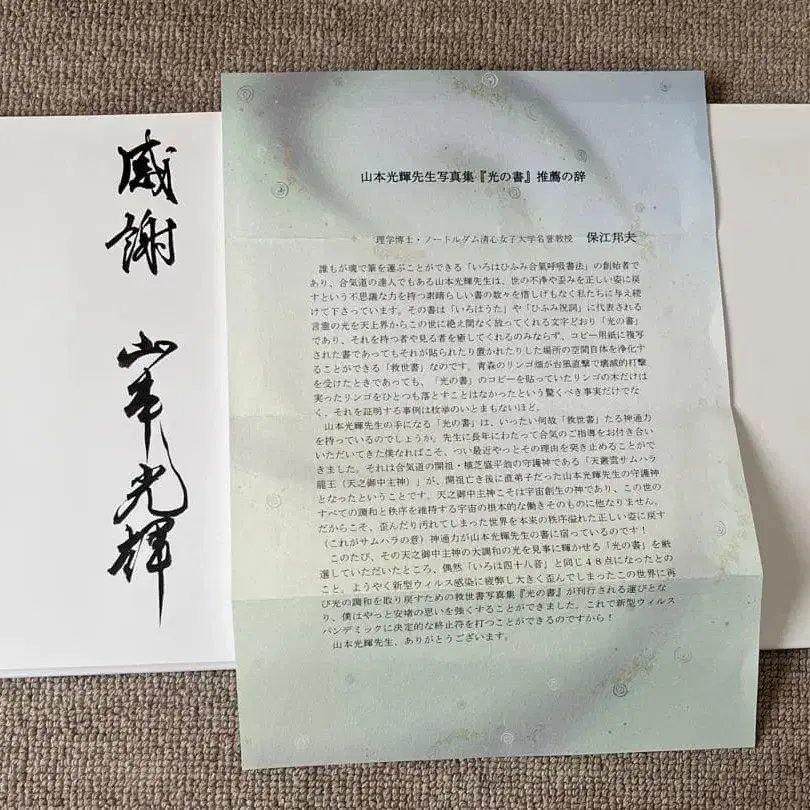 感謝
山本光輝
山本光輝先生写真集『光の書』推薦の辞
理学博士・ノートルダム清心女子大学名誉教授　保江邦夫
誰もが魂で筆を運ぶことができる「いろはひふみ合氣呼吸書法」の創始者で
あり、合気道の達人でもある山本光輝先生は、世の不浄や歪みを正しい姿に戻
すという不思議な力を持つ素晴らしい書の数々を惜しげもなく私たちに与え続
けて下さっています。その書は「いろはうた」や「ひふみ祝詞」に代表される
言霊の光を天上界からこの世に絶え間なく放ってくれる文字どおり「光の書」
であり、それを持つ者や見る者を癒してくれるのみならず、コピー用紙に複写
された書であってもそれが貼られたり置かれたりした場所の空間自体を浄化す
ることができる「救世書」なのです。青森のリンゴ畑が台風直撃で壊滅的打撃
を受けたときであっても、「光の書」のコピーを貼っていたリンゴの木だけは
実ったリンゴをひとつも落とすことはなかったという驚くべき事実だけでな
く、それを証明する事例は枚挙のいとまもないほど。
山本光輝先生の手になる「光の書」は、いったい何故「救世書」たる神通力
を持っているのでしょうか。先生に長年にわたって合気のご指導をお付き合い
いただいてきた僕なればこそ、つい最近やっとその理由を突き止めることがで
きました。それは合気道の開祖・植芝盛平翁の守護神である「天叢雲サムハラ
龍王（天之御中主神）」が、開祖亡き後に直弟子だった山本光輝先生の守護神
となったということです。天之御中主神こそは宇宙創生の神であり、この世の
すべての調和と秩序を維持する宇宙の根本的な働きそのものに他なりません。
だからこそ、歪んだり汚れてしまった世界を本来の秩序溢れた正しい姿に戻す
（これがサムハラの意）神通力が山本光輝先生の書に宿っているのです！
このたび、その天之御中主神の大調和の光を見事に輝かせる「光の書」を厳
選していただいたところ、偶然「いろは四十八音」と同じ４８点になったとの
こと。ようやく新型ウィルス感染に疲弊し大きく歪んでしまったこの世界に再
び光の調和を取り戻すための救世書写真集『光の書』が刊行される運びとな
り、僕はやっと安堵の思いを強くすることができました。これで新型ウィルス
パンデミックに決定的な終止符を打つことができるのですから！
山本光輝先生、ありがとうございます。